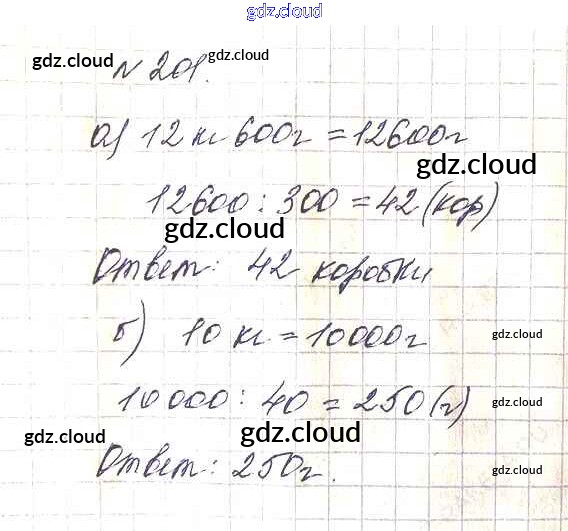 gdz.cloud
gdz.cloud № 201. gdz.cloud
а) 12 кг 600г = 12600г
gdz.cloud
12600 : 300 = 42 (кор)
gdz.cloud
Ответ: 42 коробки
б) 10 кг = 10000г
gdz.cloud
10 000 : 40 = 250 (г)
gdz.cloud
gdz.cloud gdz.cloud
Ответ: 250г.
gdz.cloud